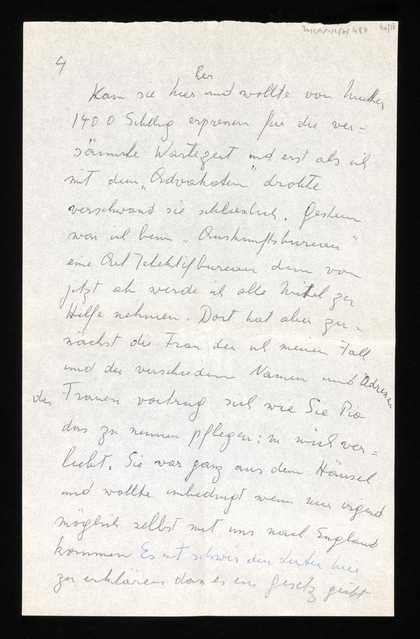 4
Kam sie hier und wollte von
1400 Schillg erpressen für die ver-
säumte Wartezeit und erst als ich
mit dem „Advokaten" drohte
verschwand sie schliesslich. Gestern
war ich beim „Auskunftsbureau"
eine Art Detektivbureau denn von
jetzt ab werde ich alle Mittel zu
Hilfe nehmen. Dort hat aber zu-
nächst die Frau der ich meinen Fall
und die verschiedenen Namen und Adressen
der Frauen vortrug sich wie Sie Pia
das zu nennen pflegen: in mich ver-
liebt. Sie war ganz aus dem Häusel
und wollte unbedingt wenn nur irgend
möglich selbst mit uns nach England
kommen Es ist schwer den Leuten hier
zu erklären dass es ein Gesetz gibt